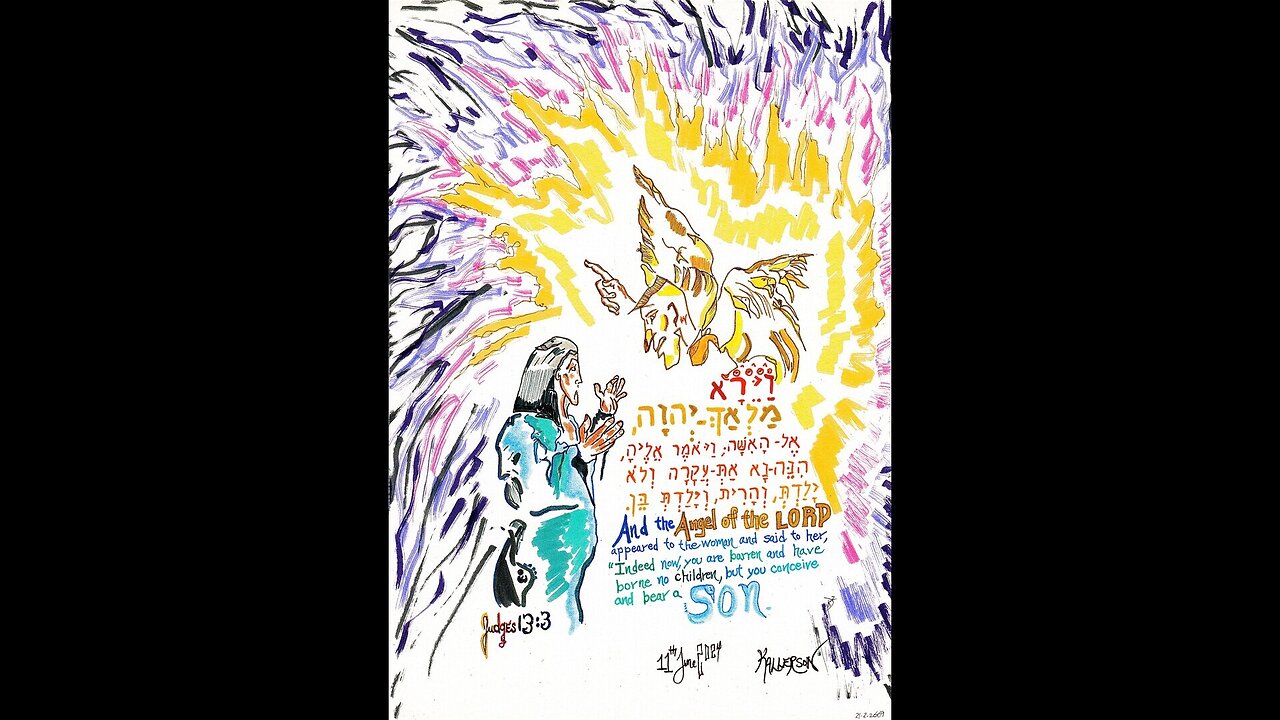 וַיֵּרָא
מַלְאַךְ-יְהוָה,
אֶל-הָאִשָּׁה; וַיֹּאמֶר אֵלֶיהָ,
הִנֵּה-נָא אַתְּ-עֲקָרָה וְלֹא
יָלַדְתְּ, וְהָרִית, וְיָלַדְתְּ בֵּן.
And the Angel of the LORD
appeared to the woman and said to her,
"Indeed now, you are barren and have
borne no children, but you conceive
and bear a SON.
Judges 13:3
11th June 2024
KALDERSON